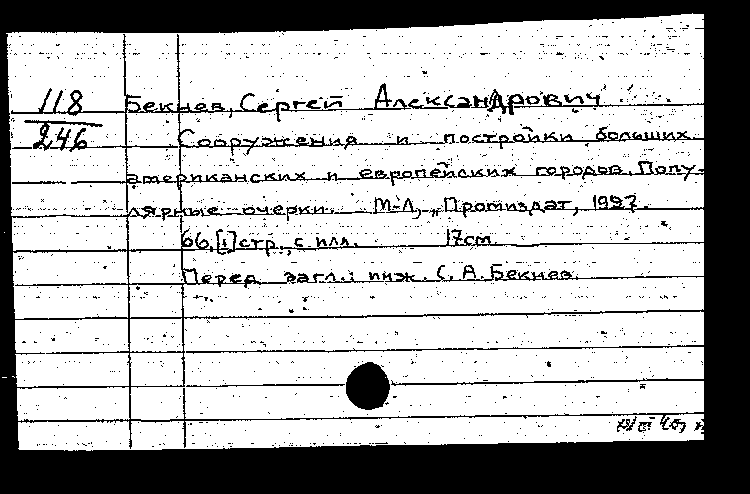 118
246
Бекнев, Сергей Александрович
Сооружения и постройки больших
американских и европейских городов. Попу-
лярные очерки. М-Л, „Промиздат, 1927.
66,[1]стр., с илл. 17см.
Перед загл.: инж. С. А. Бекнев.